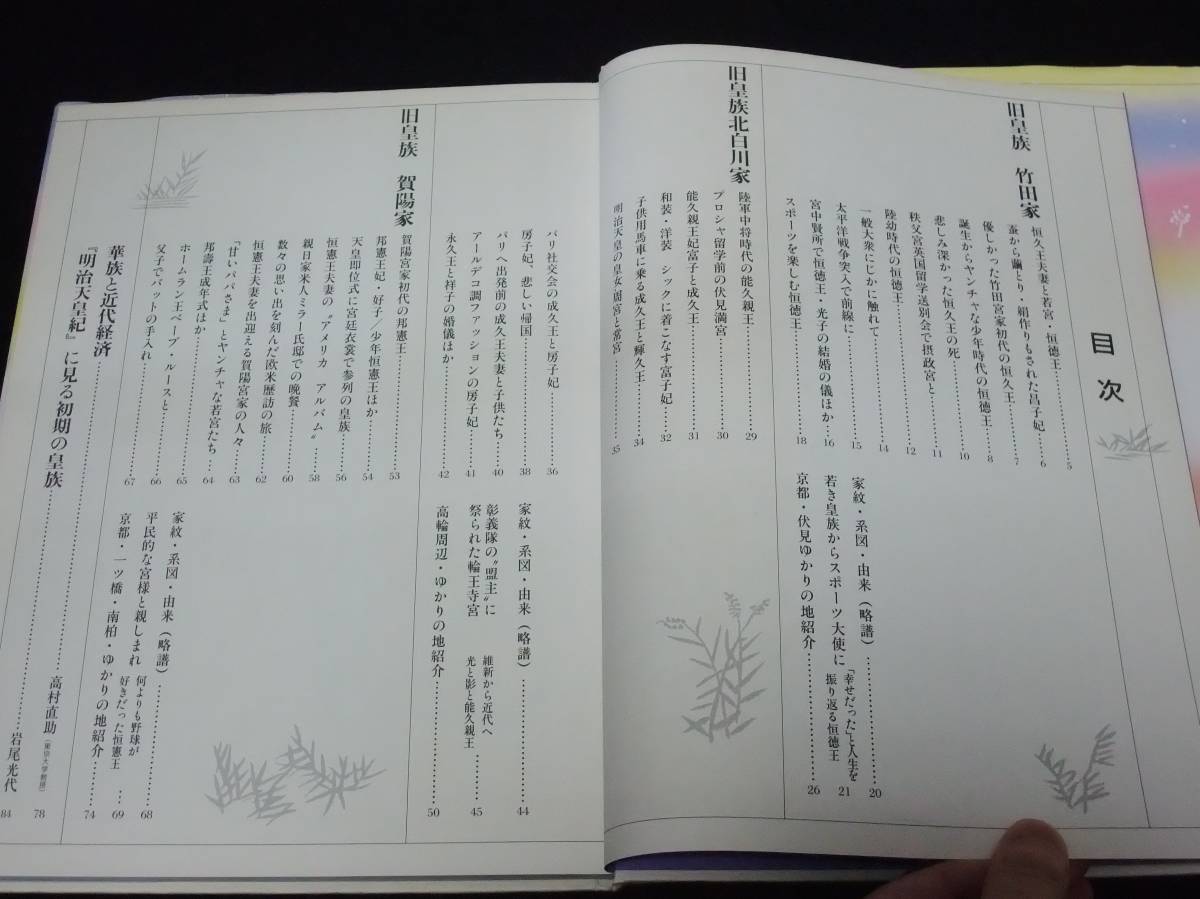 目次
旧皇族 竹田家
恒久王夫妻と若宮・恒徳王……5
蚕から繭とり・絹作りもされた昌子妃……6
優しかった竹田宮家初代の恒久王……7
誕生からヤンチャな少年時代の恒徳王……8
悲しみ深かった恒久王の死……10
秩父宮英国留学送別会で摂政宮と……11
陸幼時代の恒徳王……12
一般大衆にじかに触れて……14
太平洋戦争突入で前線に……15
宮中賢所で恒徳王・光子の結婚の儀ほか……16
スポーツを楽しむ恒徳王……18
家紋・系図・由来(略譜)……20
若き皇族からスポーツ大使に 「幸せだった」と人生を振り返る恒徳王 21
京都・伏見ゆかりの地紹介……26
旧皇族北白川家
陸軍中将時代の能久親王……29
プロシャ留学前の伏見満宮……30
能久親王妃富子と成久王……31
和装・洋装 シックに着こなす富子妃……32
子供用馬車に乗る成久王と輝久王……34
明治天皇の皇女周宮と常宮……35
パリ社交会の成久王と房子妃……36
房子妃、悲しい帰国……38
パリへ出発前の成久王夫妻と子供たち……40
アールデコ調ファッションの房子妃……41
永久王と祥子の婚儀ほか……42
家紋・系図・由来(略譜)……44
彰義隊の〝盟主〟に祭られた輪王寺宮 維新から近代へ 光と影と能久親王……45
高輪周辺・ゆかりの地紹介……50
旧皇族 賀陽家
賀陽宮家初代の邦憲王……53
邦憲王妃・好子/少年恒憲王ほか……54
天皇即位式に宮廷衣裳で参列の皇族……56
恒憲王夫妻の〝アメリカ アルバム〟……58
親日家米人ミラー氏邸での晩餐……60
数々の思い出を刻んだ欧米歴訪の旅……62
恒憲王夫妻を出迎える賀陽宮家の人々……63
「甘いパパさま」とヤンチャな若宮たち……64
邦壽王成年式ほか……65
ホームラン王ベーブ・ルースと……66
父子でバットの手入れ……67
家紋・系図・由来(略譜)……68
平民的な宮様と親しまれ 何よりも野球が好きだった恒憲王…69
京都・一ツ橋・南柏・ゆかりの地紹介……74
華族と近代経済……高村直助(東京大学教授) 78
『明治天皇紀』に見る初期の皇族……岩尾光代 84